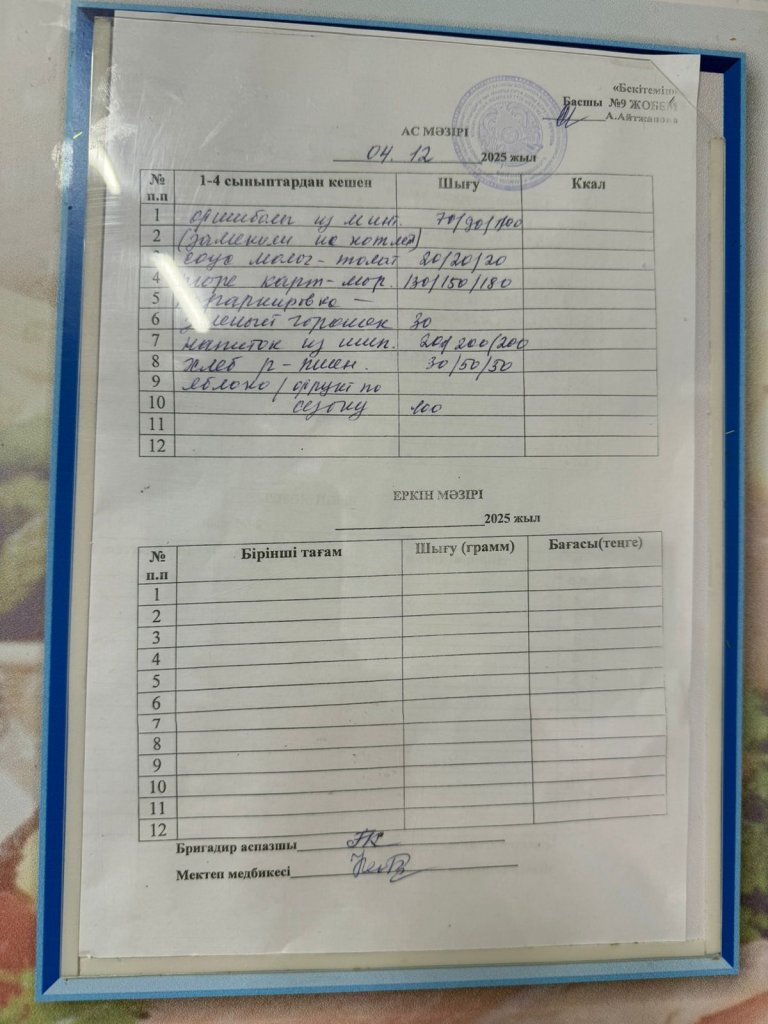 «Бекітемін»
Басшы №9 ЖОББМ
А.Айтжанова
АС МӘЗІРІ
04. 12 2025 жыл
№ п.п 1-4 сыныптардан кешен Шығу Ккал
1 из минт. 70/90/100
2 (заменили на котлет)
3 соус молоч-томат 20/20/20
4 пюре карт-мор. 130/150/180
5 п гарнировка —
6 зеленый горошек 30
7 напиток из шип. 200/200/200
8 хлеб р-пшен. 30/50/50
9 яблоко / фрукт по
10 сезону 100
11
12
ЕРКІН МӘЗІРІ
2025 жыл
№ п.п Бірінші тағам Шығу (грамм) Бағасы(теңге)
1
2
3
4
5
6
7
8
9
10
11
12
Бригадир аспазшы
Мектеп медбикесі